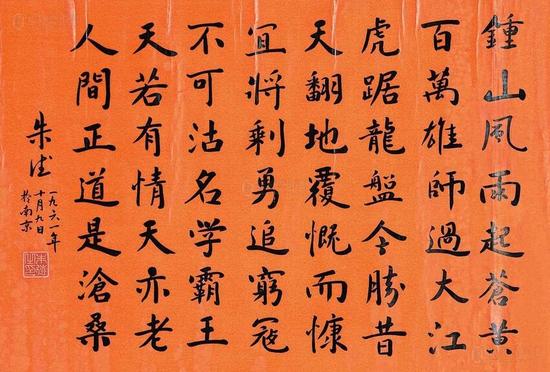 鍾山風雨起蒼黃
百萬雄師過大江
虎踞龍盤今勝昔
天翻地覆慨而慷
宜將剩勇追窮寇
不可沽名学霸王
天若有情天亦老
人間正道是滄桑
朱德
一九六一年
十月九日
於南京